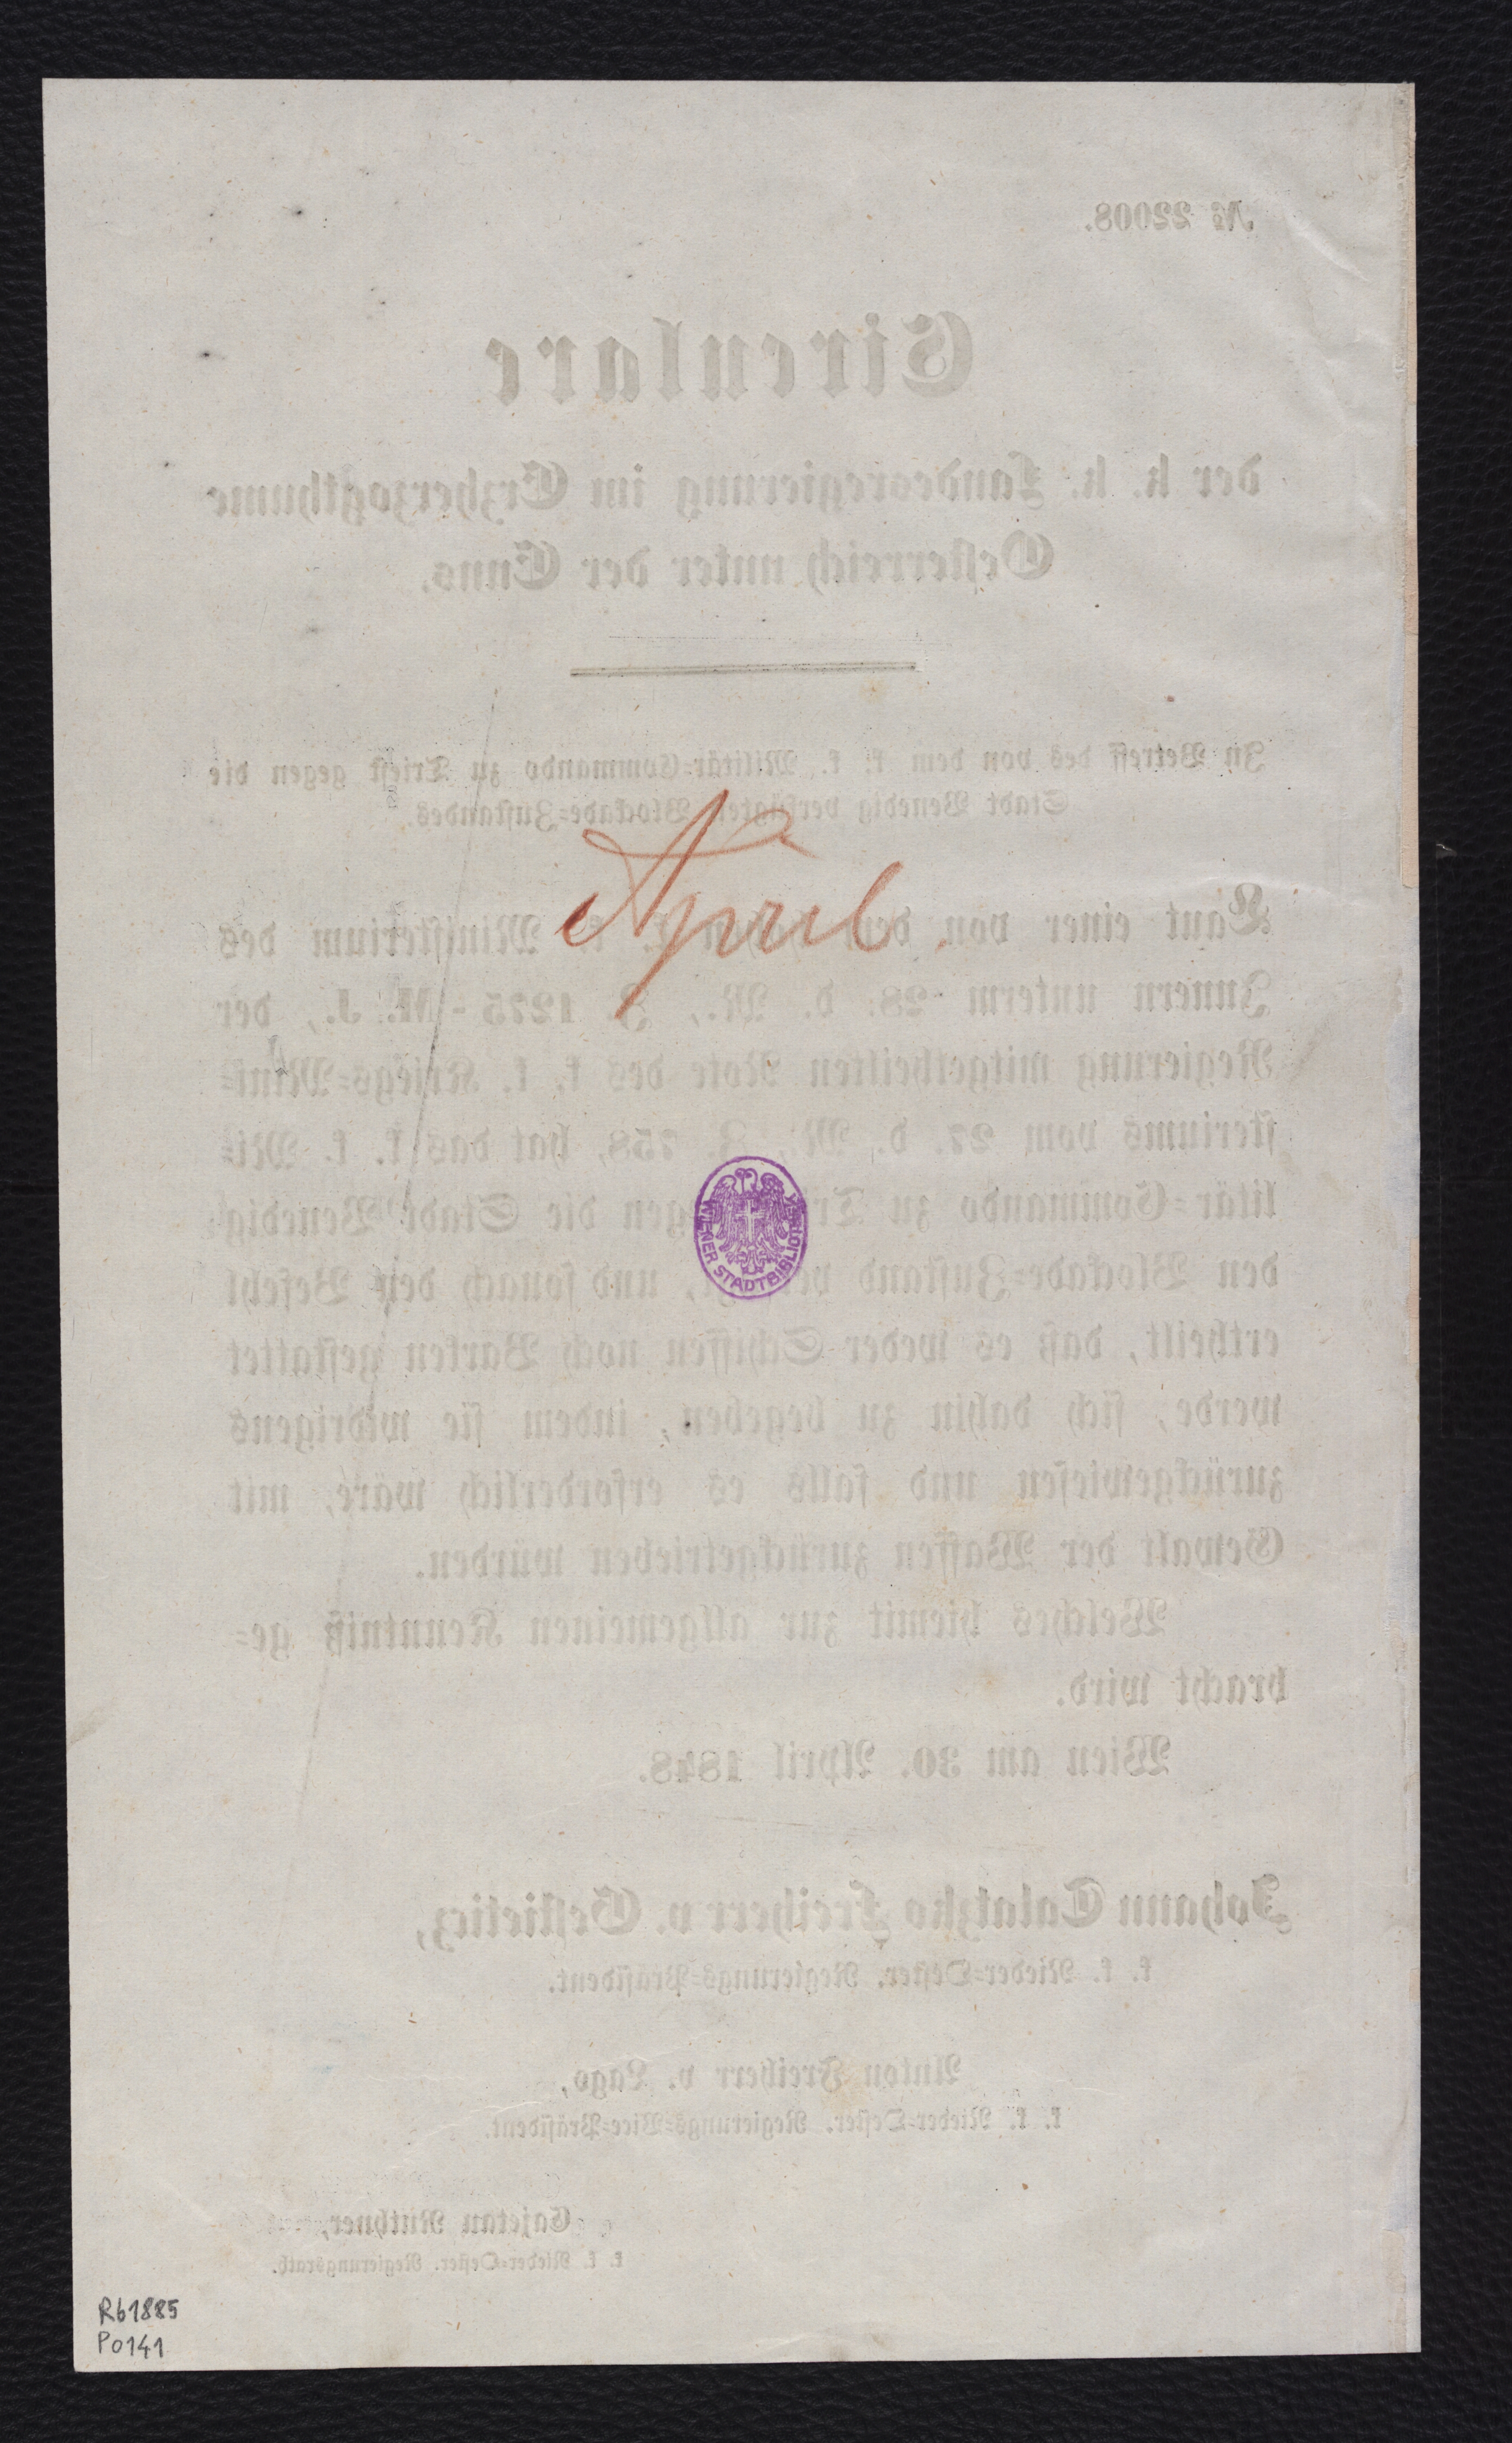 № 22008.
Circulare
der k. k. Landesregierung im Erzherzogthume
Oesterreich unter der Enns.
In Betreff des von dem k. k. Militär=Commando zu Triest gegen die
Stadt Venedig verfügten Blockade=Zustandes.
April
Laut einer von dem k. k. Ministerium des
Innern unterm 28. d. M., Z. 1275 - M. J., der
Regierung mitgetheilten Note des k. k. Kriegs=Mini=
steriums vom 27. d. M., Z. 758, hat das k. k. Mi=
litär=Commando zu gegen die Stadt Venedig
den Blockade=Zustand und sonach den Befehl
ertheilt, daß es weder Schiffen noch Barken gestattet
werde, sich dahin zu begeben, indem sie widrigens
zurückgewiesen und falls es erforderlich wäre, mit
Gewalt der Waffen zurückgetrieben würden.
Welches hiemit zur allgemeinen Kenntniß ge=
bracht wird.
Wien am 30. April 1848.
WIENER STADTBIBLIOTHEK
Johann Talatzko Freiherr v. Gestieticz,
k. k. Nieder=Oester. Regierungs=Präsident.
Anton Freiherr v. Lago,
k. k. Nieder=Oester. Regierungs=Vice=Präsident.
Cajetan Ruthner,
k. k. Nieder=Oester. Regierungsrath.
Rb1885
P0141